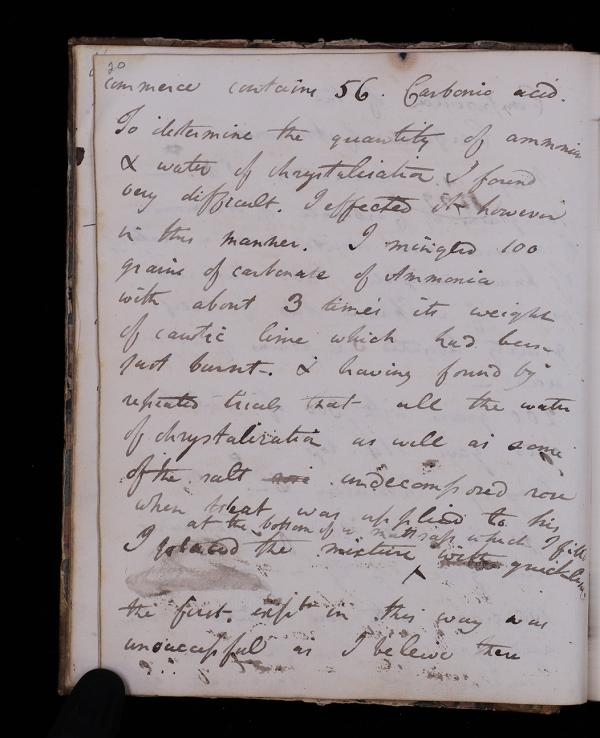 20
commerce contains 56. Carbonic acid.
To determine the quantity of ammonia
& water of chrystalisation I found
very difficult. I effected it however
in this manner. I mingled 100
grains of carbonate of Ammonia
with about 3 times its weight
of caustic lime which had been
just burnt. & having found by
repeated trials that all the water
of chrystalization as well as some
of the salt undecomposed rose
when heat was applied to his
at the bottom of a which I fill
I placed the mixture with quicklime
the first. expt in this way was
unsuccessful as I beleive there